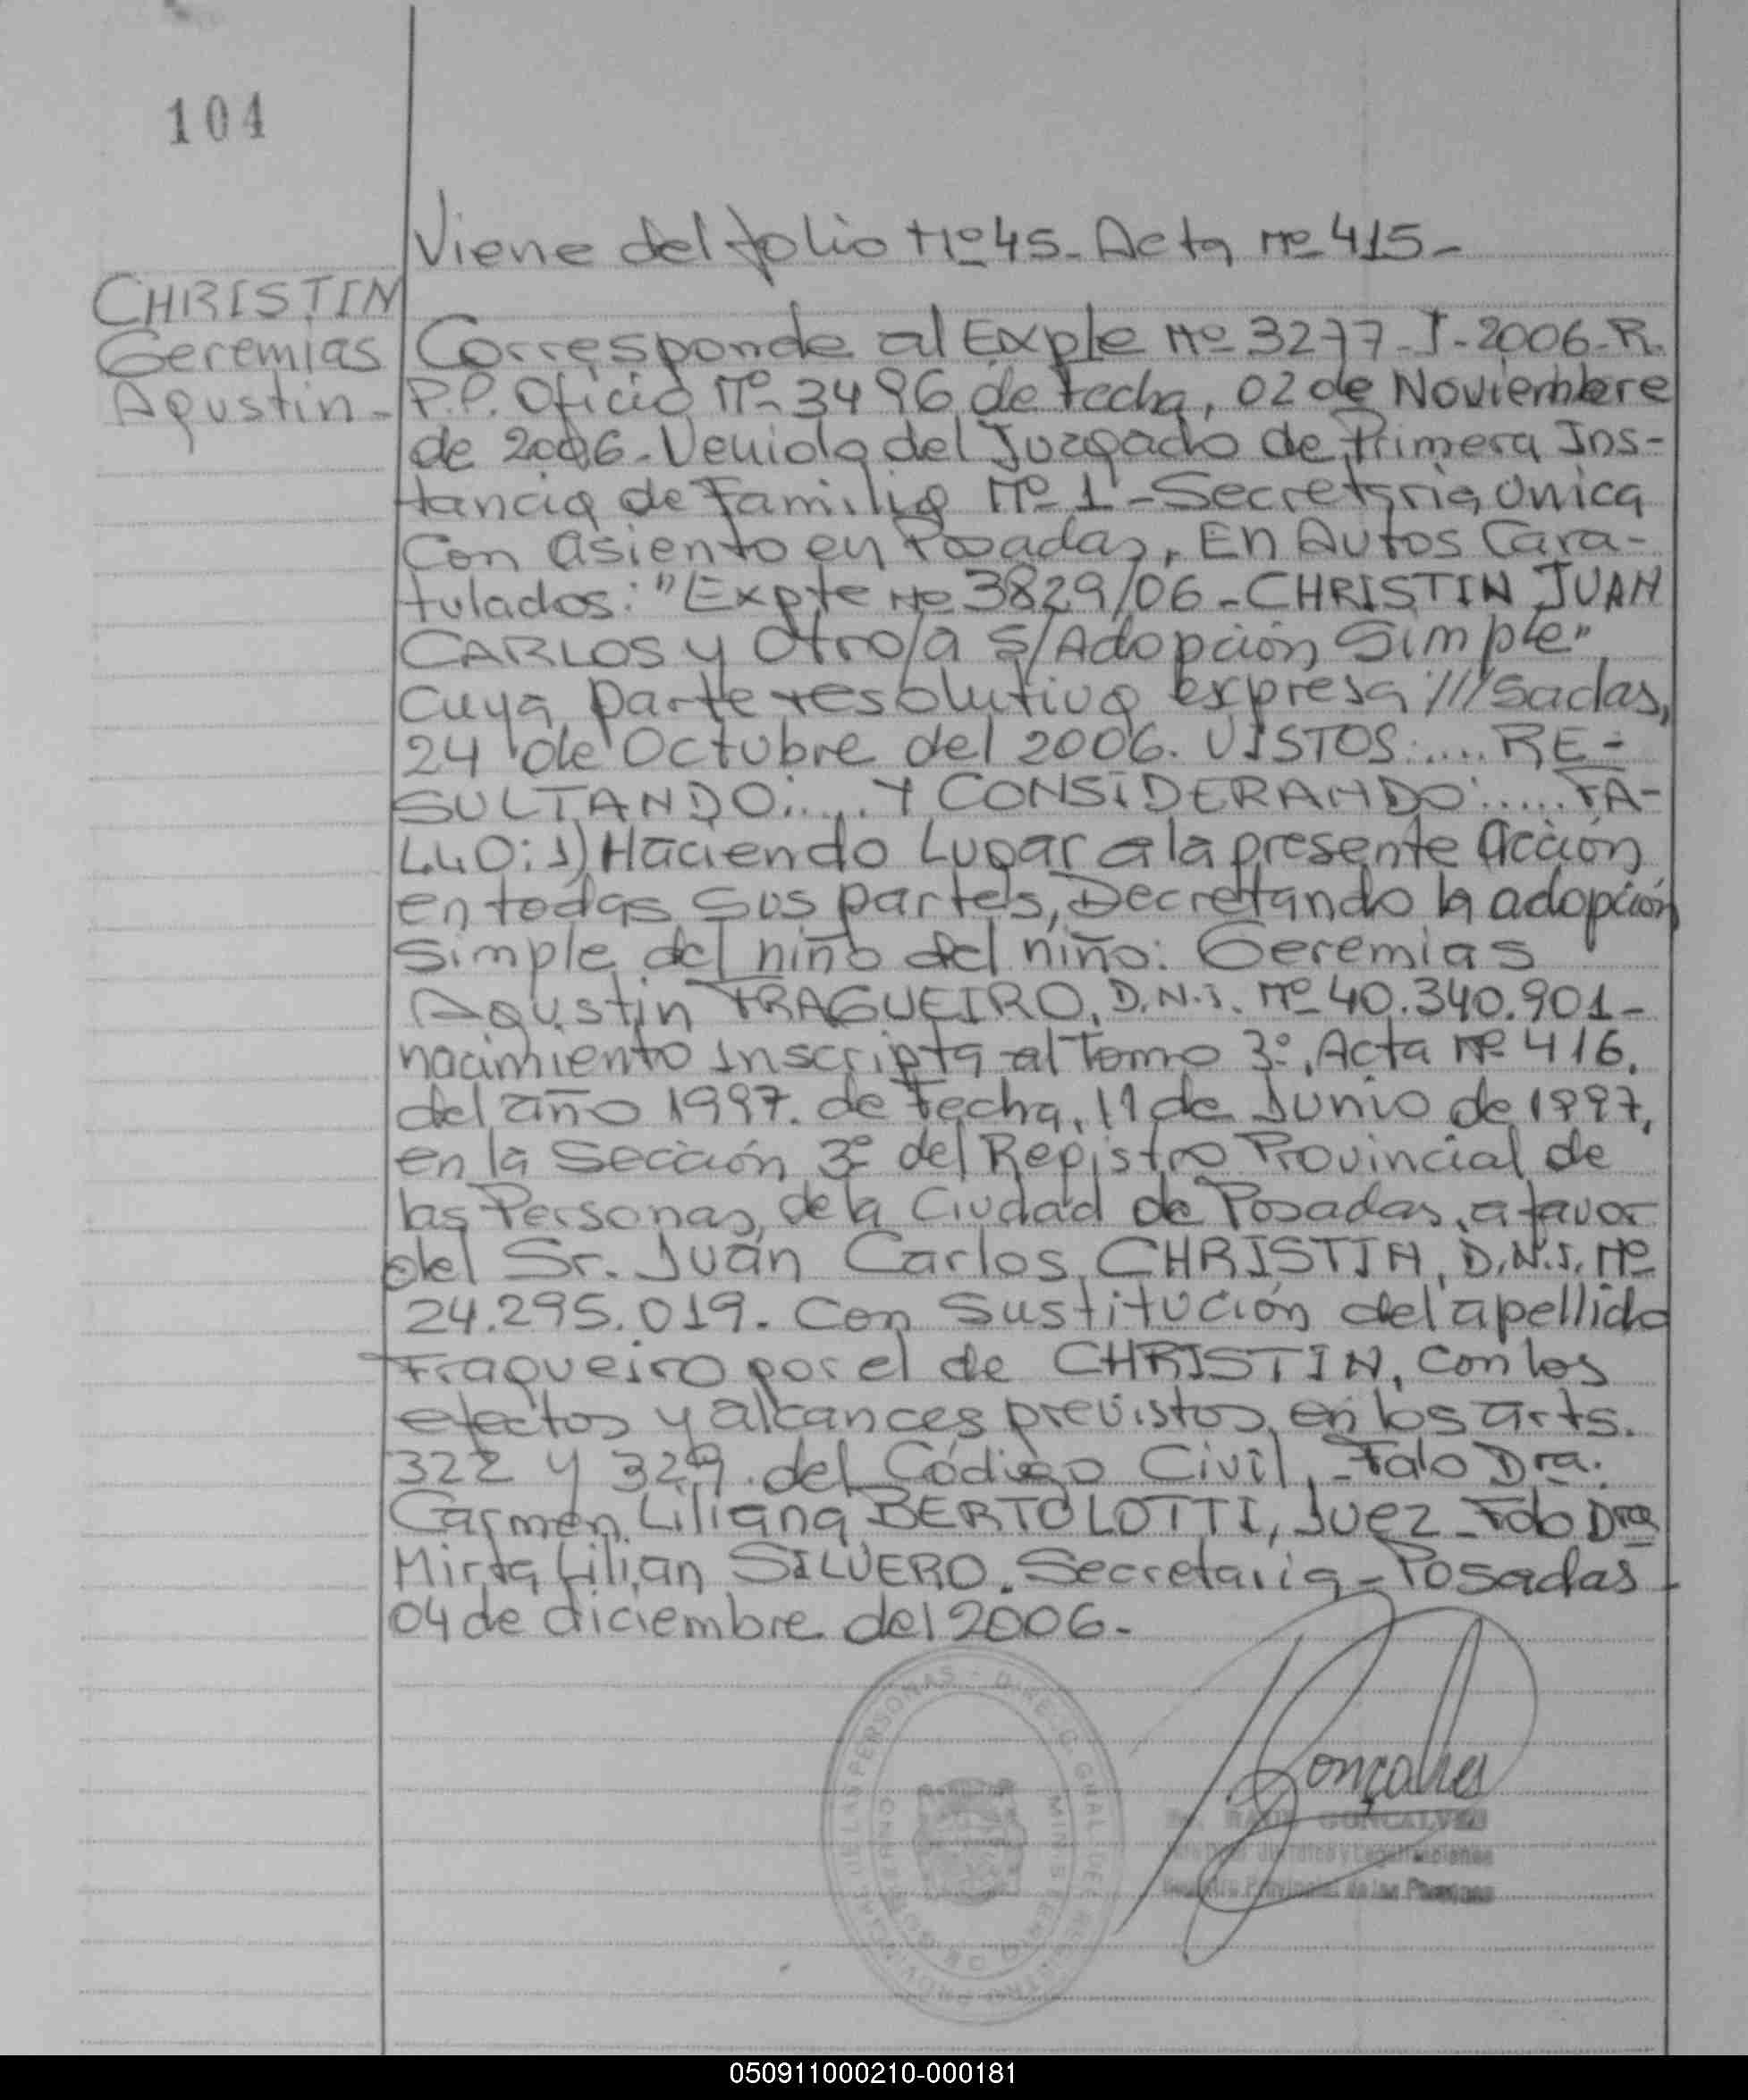 104
Viene del folio Nº 45 - Acta nº 415 -
CHRISTIN
Geremias
Agustin -
Corresponde al Expte Nº 3277-I-2006-R.
P.P. Oficio Nº 3496 de fecha, 02 de Noviembre
de 2006 - Venido del Juzgado de Primera Ins-
tancia de Familia Nº 1 - Secretaria Unica
Con asiento en Posadas, En Autos Cara-
tulados: "Expte Nº 3829/06 - CHRISTIN JUAN
CARLOS y Otro/a S/Adopción Simple"
Cuya parte resolutiva expresa: ///sadas,
24 de Octubre del 2006. VISTOS: .... RE-
SULTANDO: .... Y CONSIDERANDO: ..... FA-
LLO: 1) Haciendo Lugar a la presente acción
en todas sus partes, Decretando la adopción
Simple del niño del niño: Geremias
Agustin FRAGUEIRO, D.N.I. Nº 40.340.901 -
nacimiento inscripta al Tomo 3º, Acta Nº 416,
del año 1997. de fecha, 11 de Junio de 1997,
en la Sección 3º del Registro Provincial de
las Personas, de la Ciudad de Posadas, a favor
del Sr. Juan Carlos CHRISTIN, D.N.I. Nº
24.295.019. Con Sustitución del apellido
Fragueiro por el de CHRISTIN, con los
efectos y alcances previstos en los arts.
322 y 329 del Código Civil, - Fdo Dra.
Carmen Liliana BERTOLOTTI, Juez - Fdo Dra
Mirta Lilian SILVERO. Secretaria - Posadas
04 de diciembre del 2006 -
Gonçalves
Dr. RAUL GONCALVES
Registro Provincial de las Personas
050911000210-000181